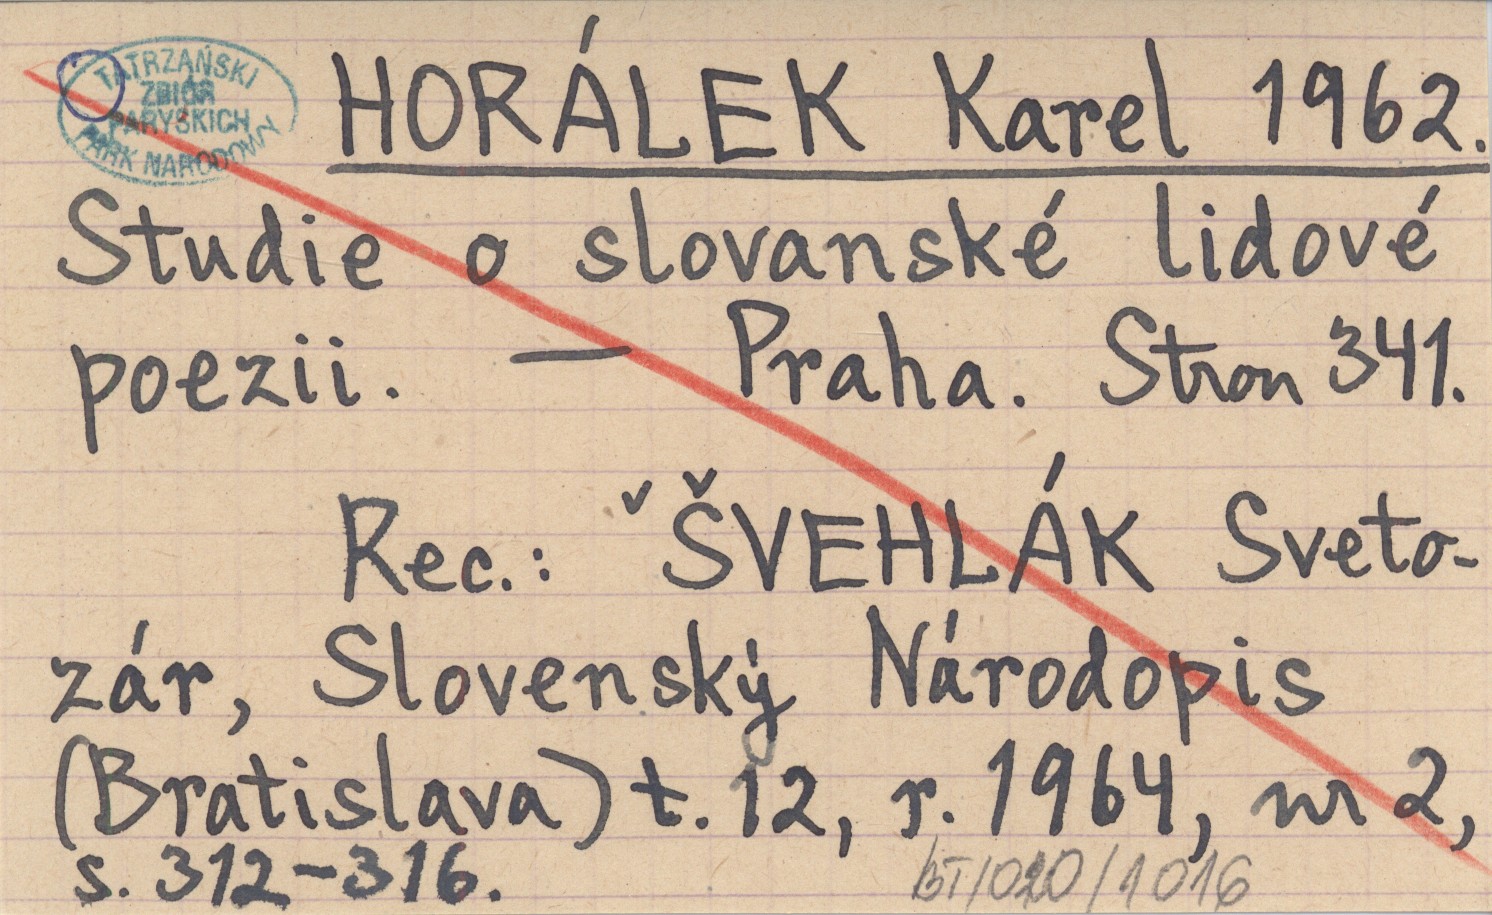 TATRZAŃSKI
ZBIÓR
PARYSKICH
PARK NARODOWY
HORÁLEK Karel 1962.
Studie o slovanské lidové
poezii. — Praha. Stron 341.
Rec.: ŠVEHLÁK Sveto-
zár, Slovenský Národopis
(Bratislava) t. 12, r. 1964, nr 2,
s. 312-316.
BT/020/1016